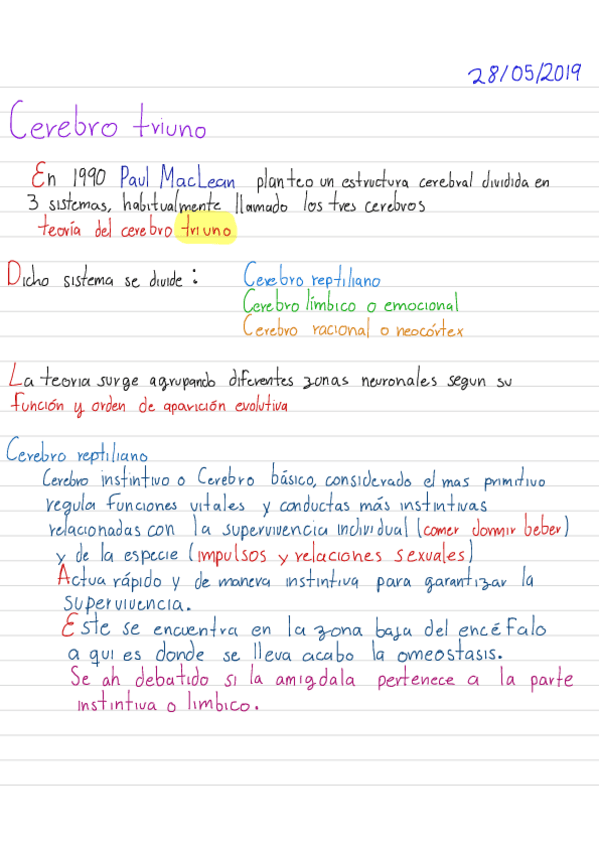 28/05/2019
Cerebro triuno
En 1990 Paul MacLean planteo un estructura cerebral dividida en
3 sistemas, habitualmente llamado los tres cerebros
teoría del cerebro triuno
Dicho sistema se divide: Cerebro reptiliano
Cerebro límbico o emocional
Cerebro racional o neocórtex
La teoria surge agrupando diferentes zonas neuronales segun su
función y orden de aparición evolutiva
Cerebro reptiliano
Cerebro instintivo o Cerebro básico, considerado el mas primitivo
regula funciones vitales y conductas más instintivas
relacionadas con la supervivencia individual (comer dormir beber)
y de la especie (impulsos y relaciones sexuales)
Actua rápido y de manera instintiva para garantizar la
supervivencia.
Este se encuentra en la zona baja del encéfalo
a qui es donde se lleva acabo la omeostasis.
Se ah debatido si la amigdala pertenece a la parte
instintiva o limbico.